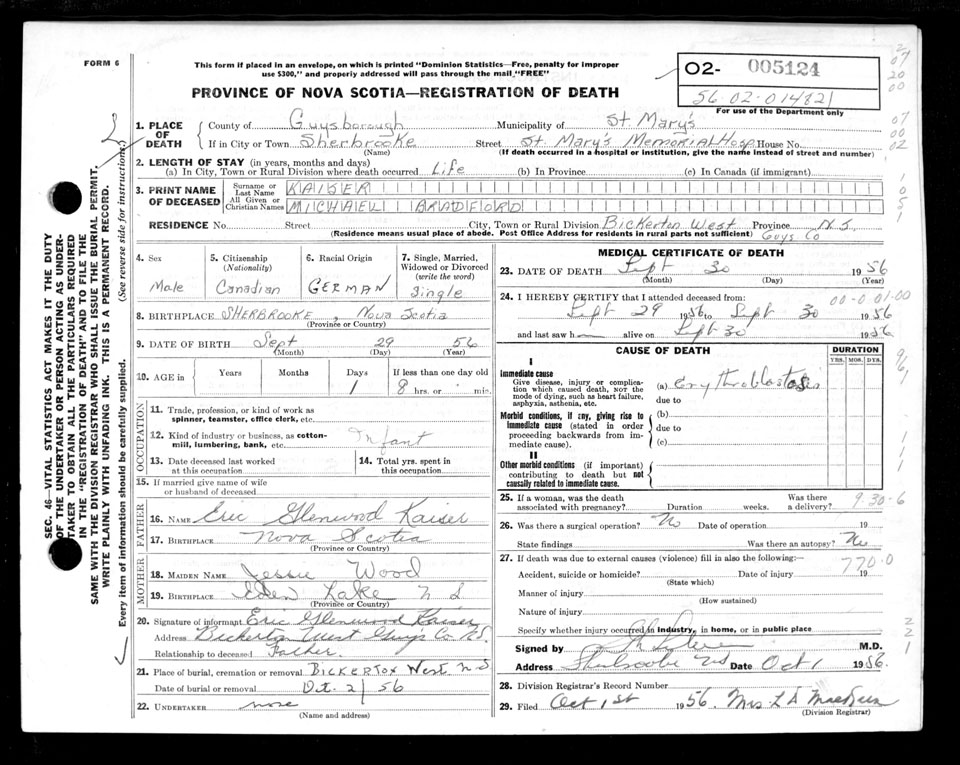 FORM 6
This form if placed in an envelope, on which is printed "Dominion Statistics—Free, penalty for improper
use $300," and properly addressed will pass through the mail "FREE"
PROVINCE OF NOVA SCOTIA—REGISTRATION OF DEATH
02- 005124
56-02-014821
For use of the Department only
SEC. 46—VITAL STATISTICS ACT MAKES IT THE DUTY
OF THE UNDERTAKER OR PERSON ACTING AS UNDER-
TAKER TO OBTAIN ALL THE PARTICULARS REQUIRED
IN THE "REGISTRATION OF DEATH" AND TO FILE THE
SAME WITH THE DIVISION REGISTRAR WHO SHALL ISSUE THE BURIAL PERMIT.
WRITE PLAINLY WITH UNFADING INK. THIS IS A PERMANENT RECORD.
Every item of information should be carefully supplied. (See reverse side for instructions.)
1. PLACE OF DEATH
County of Guysborough Municipality of St Mary's
If in City or Town Sherbrooke Street St. Mary's Memorial Hosp House No.
(Name) (If death occurred in a hospital or institution, give the name instead of street and number)
2. LENGTH OF STAY (in years, months and days)
(a) In City, Town or Rural Division where death occurred Life (b) In Province (c) In Canada (if immigrant)
3. PRINT NAME OF DECEASED
Surname or Last Name KAISER
All Given or Christian Names MICHAEL BRADFORD
RESIDENCE No. Street City, Town or Rural Division Bickerton West Province N.S.
(Residence means usual place of abode. Post Office Address for residents in rural parts not sufficient) Guys Co
4. Sex Male
5. Citizenship (Nationality) Canadian
6. Racial Origin GERMAN
7. Single, Married, Widowed or Divorced (write the word) Single
8. BIRTHPLACE SHERBROOKE, Nova Scotia
(Province or Country)
9. DATE OF BIRTH Sept 29 56
(Month) (Day) (Year)
10. AGE in Years Months Days 1 If less than one day old 8 hrs. or min.
OCCUPATION
11. Trade, profession, or kind of work as
spinner, teamster, office clerk, etc.
12. Kind of industry or business, as cotton-
mill, lumbering, bank, etc. Infant
13. Date deceased last worked
at this occupation
14. Total yrs. spent in
this occupation
15. If married give name of wife
or husband of deceased
FATHER
16. NAME Eric Glenwood Kaiser
17. BIRTHPLACE Nova Scotia
(Province or Country)
MOTHER
18. MAIDEN NAME Jessie Wood
19. BIRTHPLACE Eden Lake N S
(Province or Country)
20. Signature of informant Eric Glenwood Kaiser
Address Bickerton West Guys Co N.S.
Relationship to deceased Father.
21. Place of burial, cremation or removal BICKERTON West N S
Date of burial or removal Oct. 2/56
22. UNDERTAKER none
(Name and address)
MEDICAL CERTIFICATE OF DEATH
23. DATE OF DEATH Sept 30 1956
(Month) (Day)
24. I HEREBY CERTIFY that I attended deceased from: 00-0 01-00
Sept 29 1956 to Sept 30 1956
and last saw h alive on Sept 30 1956
CAUSE OF DEATH
DURATION
YRS. MOS. DYS.
I
Immediate cause
Give disease, injury or complica-
tion which caused death, NOT the
mode of dying, such as heart failure,
asphyxia, asthenia, etc.
(a) Erythroblastosis
due to
Morbid conditions, if any, giving rise to
immediate cause (stated in order
proceeding backwards from im-
mediate cause).
(b)
due to
(c)
II
Other morbid conditions (if important)
contributing to death but not
causally related to immediate cause.
25. If a woman, was the death
associated with pregnancy? Duration weeks. Was there a delivery? 9-30-6
26. Was there a surgical operation? No Date of operation 19
State findings Was there an autopsy? No
27. If death was due to external causes (violence) fill in also the following:— 770.0
Accident, suicide or homicide? Date of injury 19
(State which)
Manner of injury
(How sustained)
Nature of injury
Specify whether injury occurred in industry, in home, or in public place
Signed by M.D.
Address Sherbrooke NS Date Oct 1 1956.
28. Division Registrar's Record Number
29. Filed Oct 1st 1956. Mrs L A
(Division Registrar)